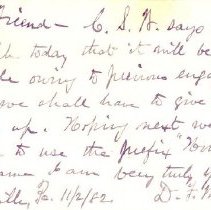 Friend — C. S. W. says
today that it will be
owing to previous eng
we shall have to give
up. Hoping next we
to use the prefix "Hon
I am very truly y
Pa. 11/2/82. D. F.